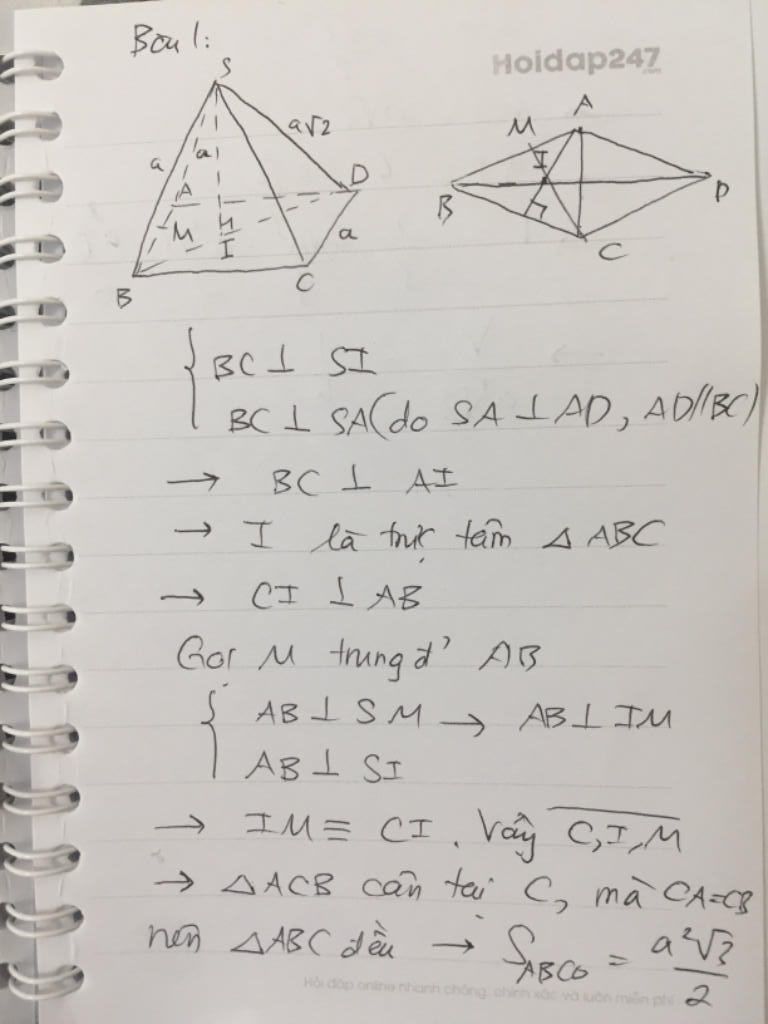 Bài 1:
Hoidap247
.com
S
a√2
a
a
A
D
M
H
I
a
B
C
A
M
I
B
D
C
{ BC ⊥ SI
BC ⊥ SA (do SA ⊥ AD, AD//BC)
→ BC ⊥ AI
→ I là trực tâm △ ABC
→ CI ⊥ AB
Gọi M trung đ' AB
{ AB ⊥ SM → AB ⊥ IM
AB ⊥ SI
→ IM ≡ CI. Vậy C, I, M
→ △ACB cân tại C, mà CA=CB
nên △ABC đều → S_ABCD = a²√3/2
Hỏi đáp online nhanh chóng, chính xác và luôn miễn phí